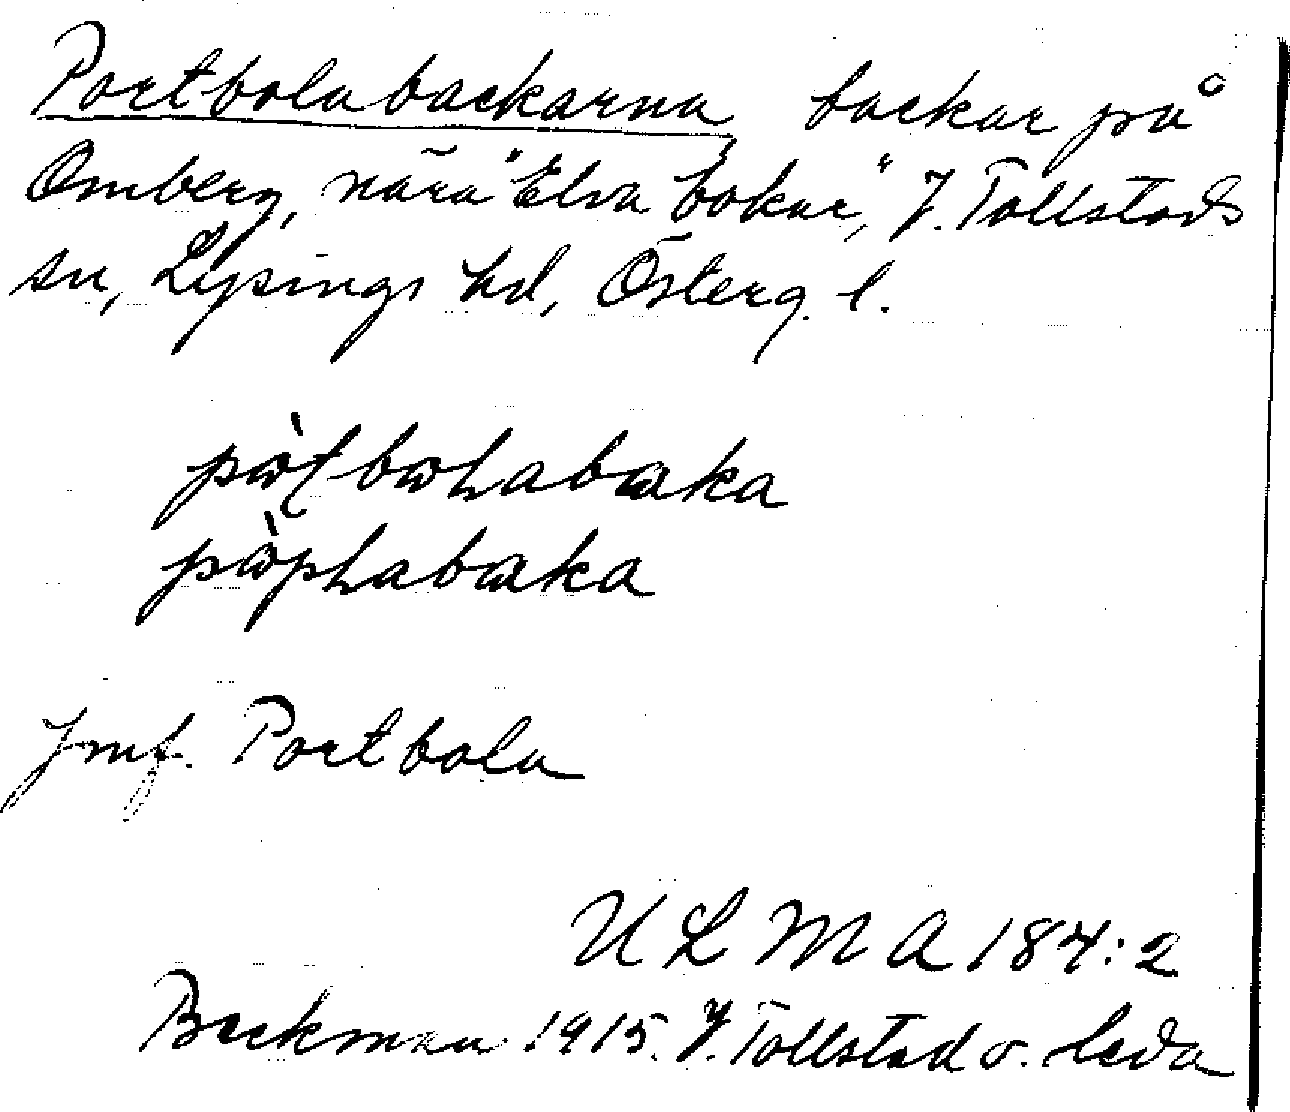 Portbolabackarna, backar på
Omberg, nära "Elva bokar", V. Tollstads
sn, Lysings hd, Österg. l.
Jmf. Portbola
ULMA 184:2
Beckman 1915. V. Tollstad o. Heda